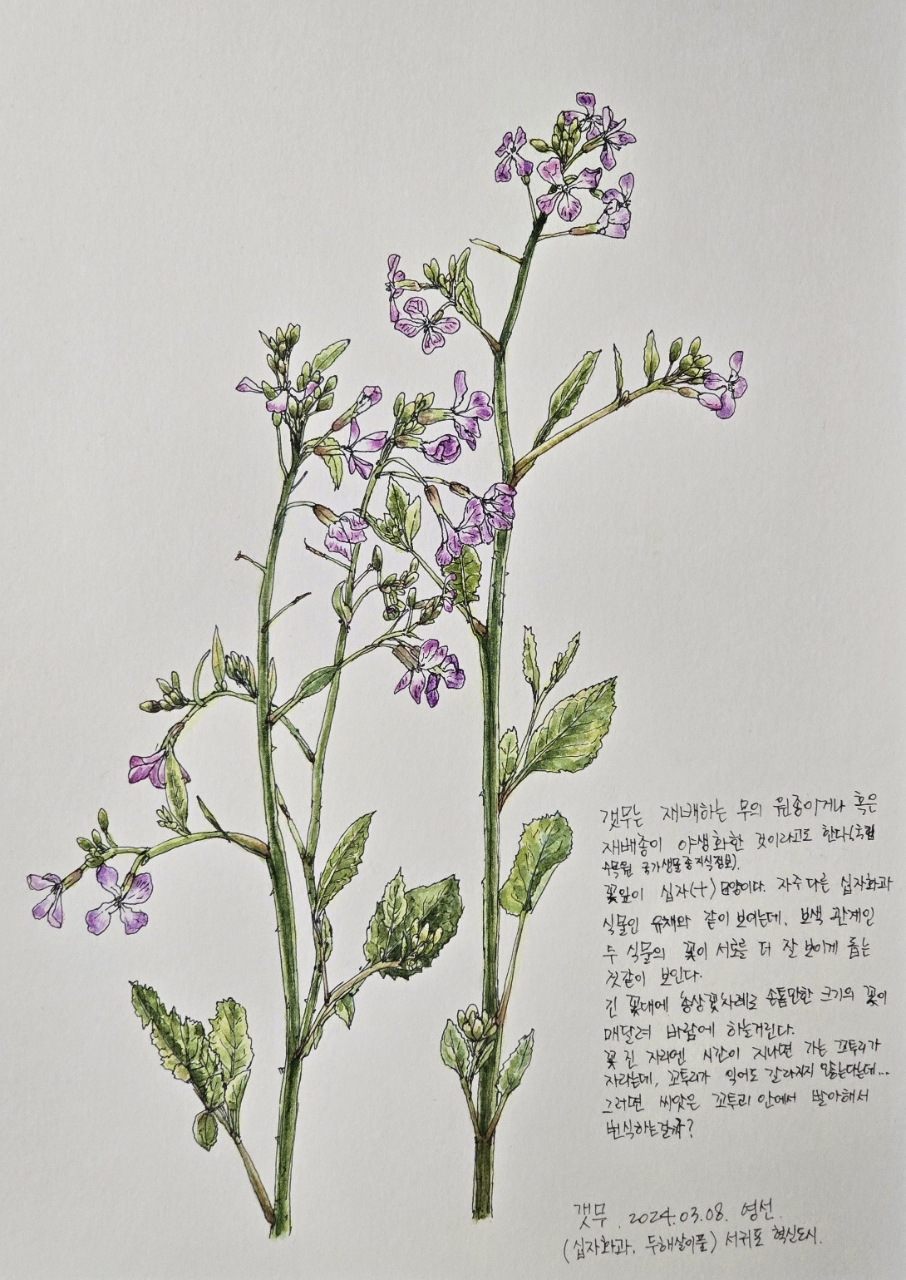 갯무는 재배하는 무의 원종이거나 혹은
재배종이 야생화한 것이라고도 한다.(국립
수목원 국가생물종지식정보).
꽃잎이 십자(十) 모양이다. 자주 다른 십자화과
식물인 유채와 같이 보이는데, 보색 관계인
두 식물의 꽃이 서로를 더 잘 보이게 돕는
것같이 보인다.
긴 꽃대에 총상꽃차례로 손톱만한 크기의 꽃이
매달려 바람에 하늘거린다.
꽃 진 자리엔 시간이 지나면 가는 꼬투리가
자라는데, 꼬투리가 익어도 갈라지지 않는다는데...
그러면 씨앗은 꼬투리 안에서 발아해서
번식하는걸까?
갯무. 2024.03.08. 영선.
(십자화과, 두해살이풀) 서귀포 혁신도시.